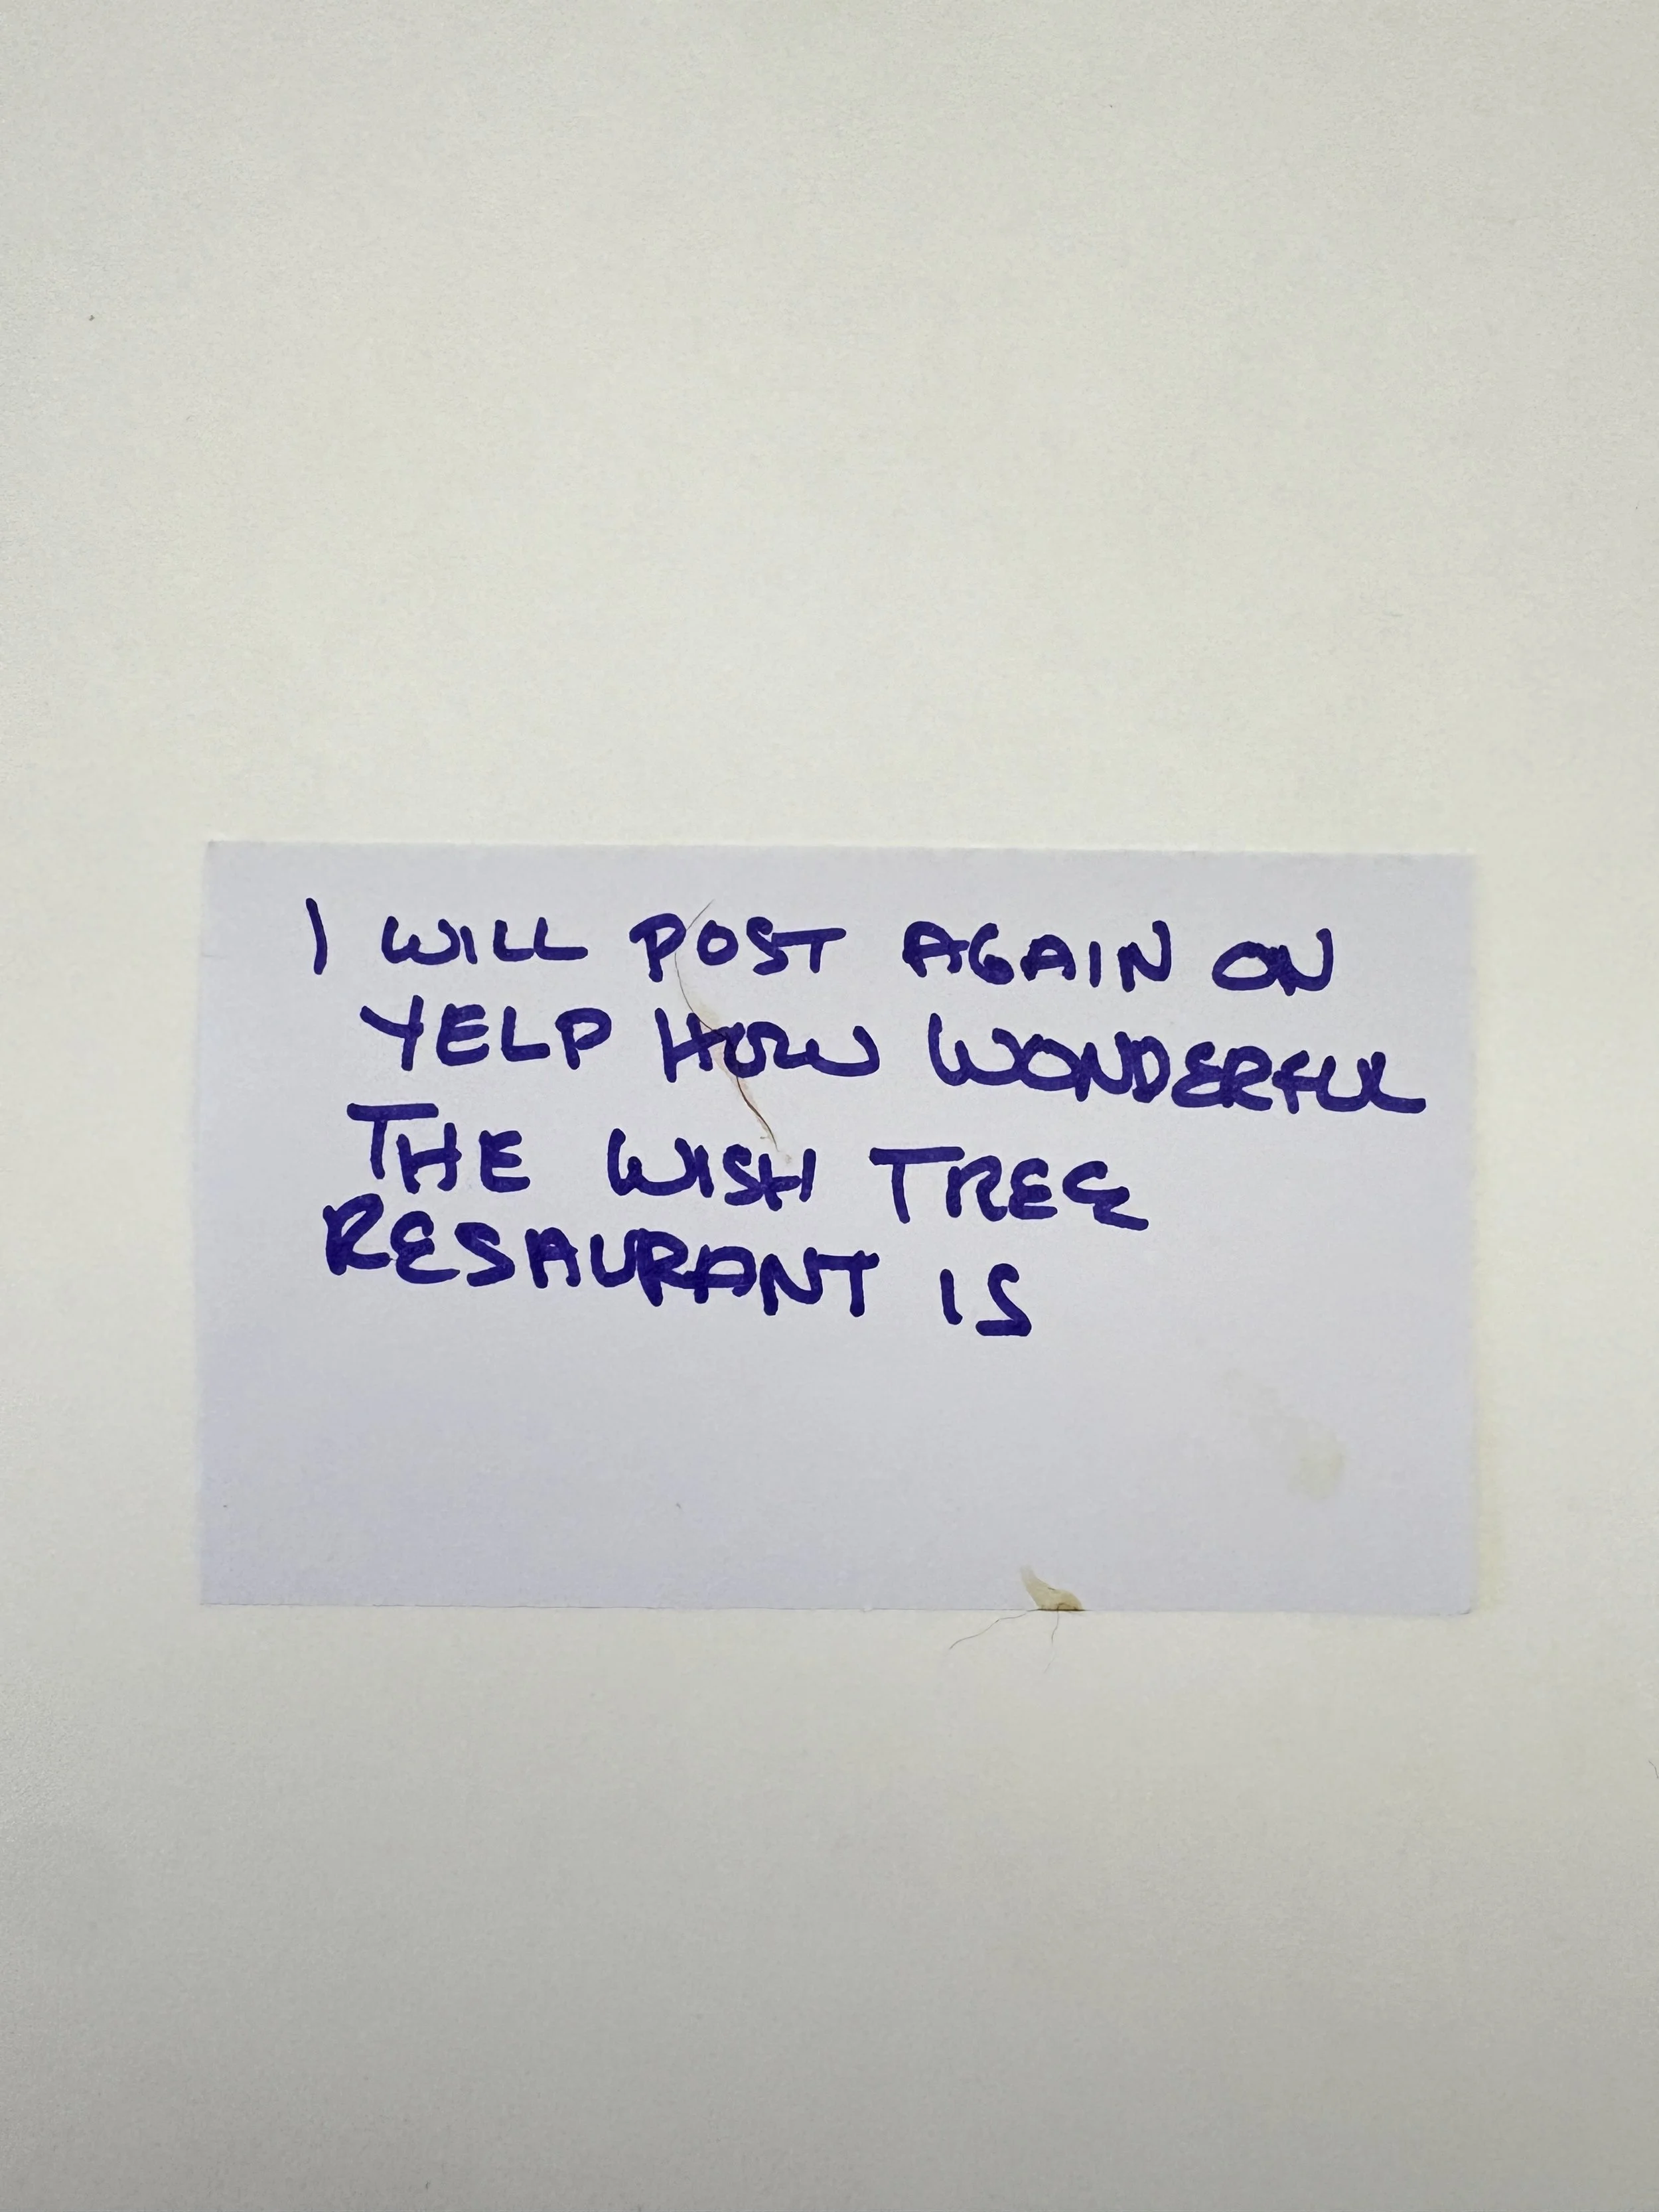 I WILL POST AGAIN ON
YELP HOW WONDERFUL
THE WISH TREE
RESAURANT IS